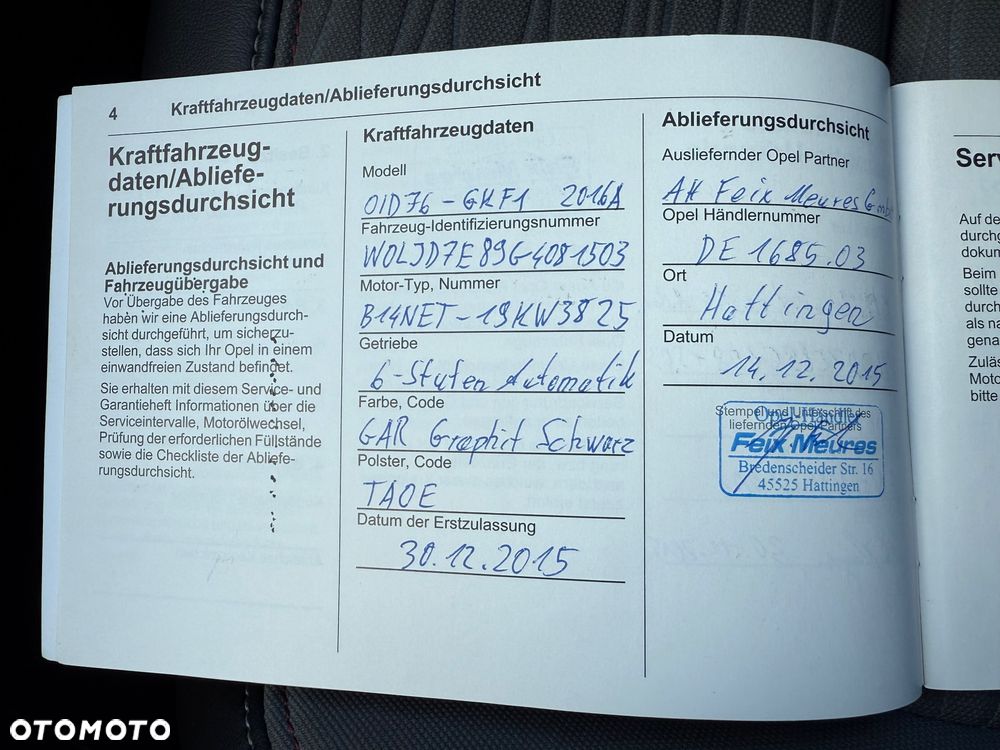 4 Kraftfahrzeugdaten/Ablieferungsdurchsicht
Kraftfahrzeug-
daten/Abliefe-
rungsdurchsicht
Ablieferungsdurchsicht und
Fahrzeugübergabe
Vor Übergabe des Fahrzeuges
haben wir eine Ablieferungsdurch-
sicht durchgeführt, um sicherzu-
stellen, dass sich Ihr Opel in einem
einwandfreien Zustand befindet.
Sie erhalten mit diesem Service- und
Garantieheft Informationen über die
Serviceintervalle, Motorölwechsel,
Prüfung der erforderlichen Füllstände
sowie die Checkliste der Abliefe-
rungsdurchsicht.
Kraftfahrzeugdaten
Modell
0ID76-GKF1 2016A
Fahrzeug-Identifizierungsnummer
W0LJD7E89G4081503
Motor-Typ, Nummer
B14NET-19KW3825
Getriebe
6-Stufen Automatik
Farbe, Code
GAR Graphit Schwarz
Polster, Code
TAOE
Datum der Erstzulassung
30.12.2015
Ablieferungsdurchsicht
Ausliefernder Opel Partner
AH Feix Meures GmbH
Opel Händlernummer
DE 1685.03
Ort
Hattingen
Datum
14.12.2015
Stempel und Unterschrift des
liefernden Opel Partners
Opel-Händler
Feix Meures
Bredenscheider Str. 16
45525 Hattingen
Ser
Auf de
durchg
dokun
Beim
sollte
durch
als na
gena
Zuläs
Moto
bitte
OTOMOTO